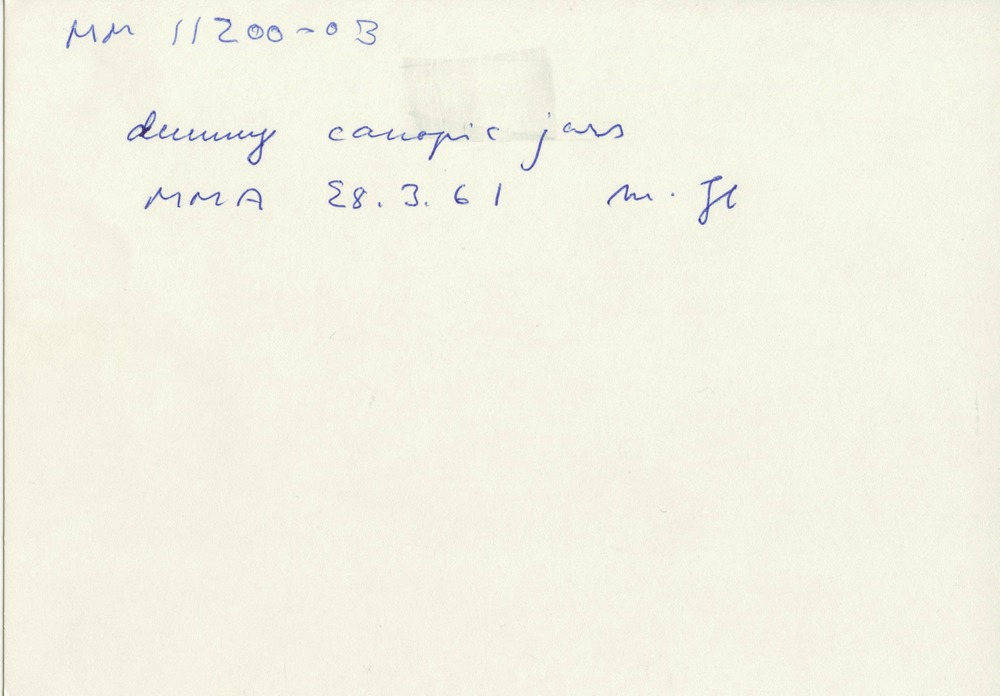 MM 11200-03
dummy canopic jars
MMA 28.3.61 m.